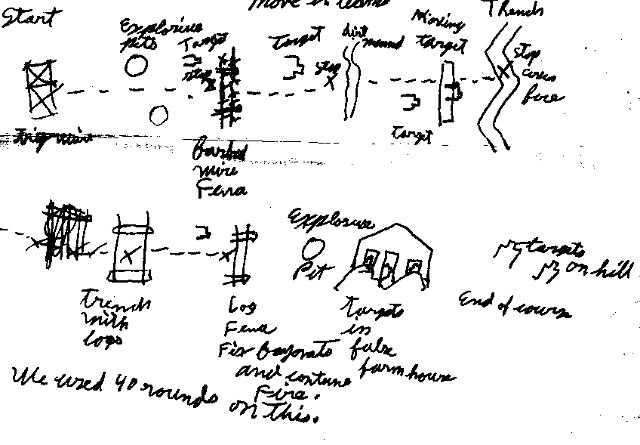 Move in teams
Start
Explosive
pits
Target
stop
Target
stop
dirt
mound
Moving
target
Target
Trends
stop
cross
fire
Trip wire
Barbed
wire
Fence
Trends
with
logs
Log
Fence
Fix Bayonets
and contune
Fire.
Explosive
Pit
Targets
in
false
farm house
targets
on hill
End of course
We used 40 rounds
on this.